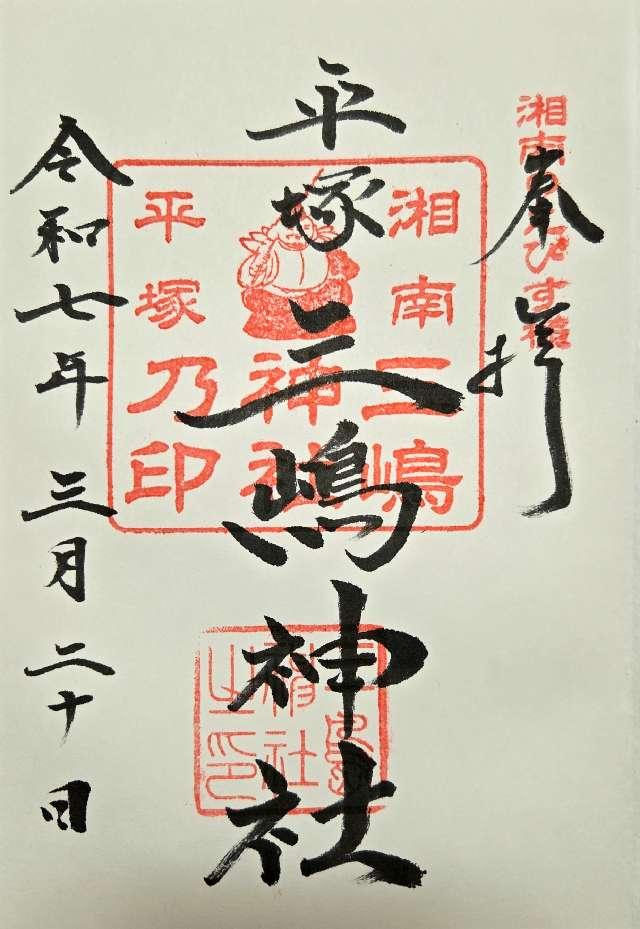 奉拝
湘南ゑびす様
平塚三嶋神社
湘南三嶋
神社
平塚乃印
三島神社之印
令和七年三月二十日